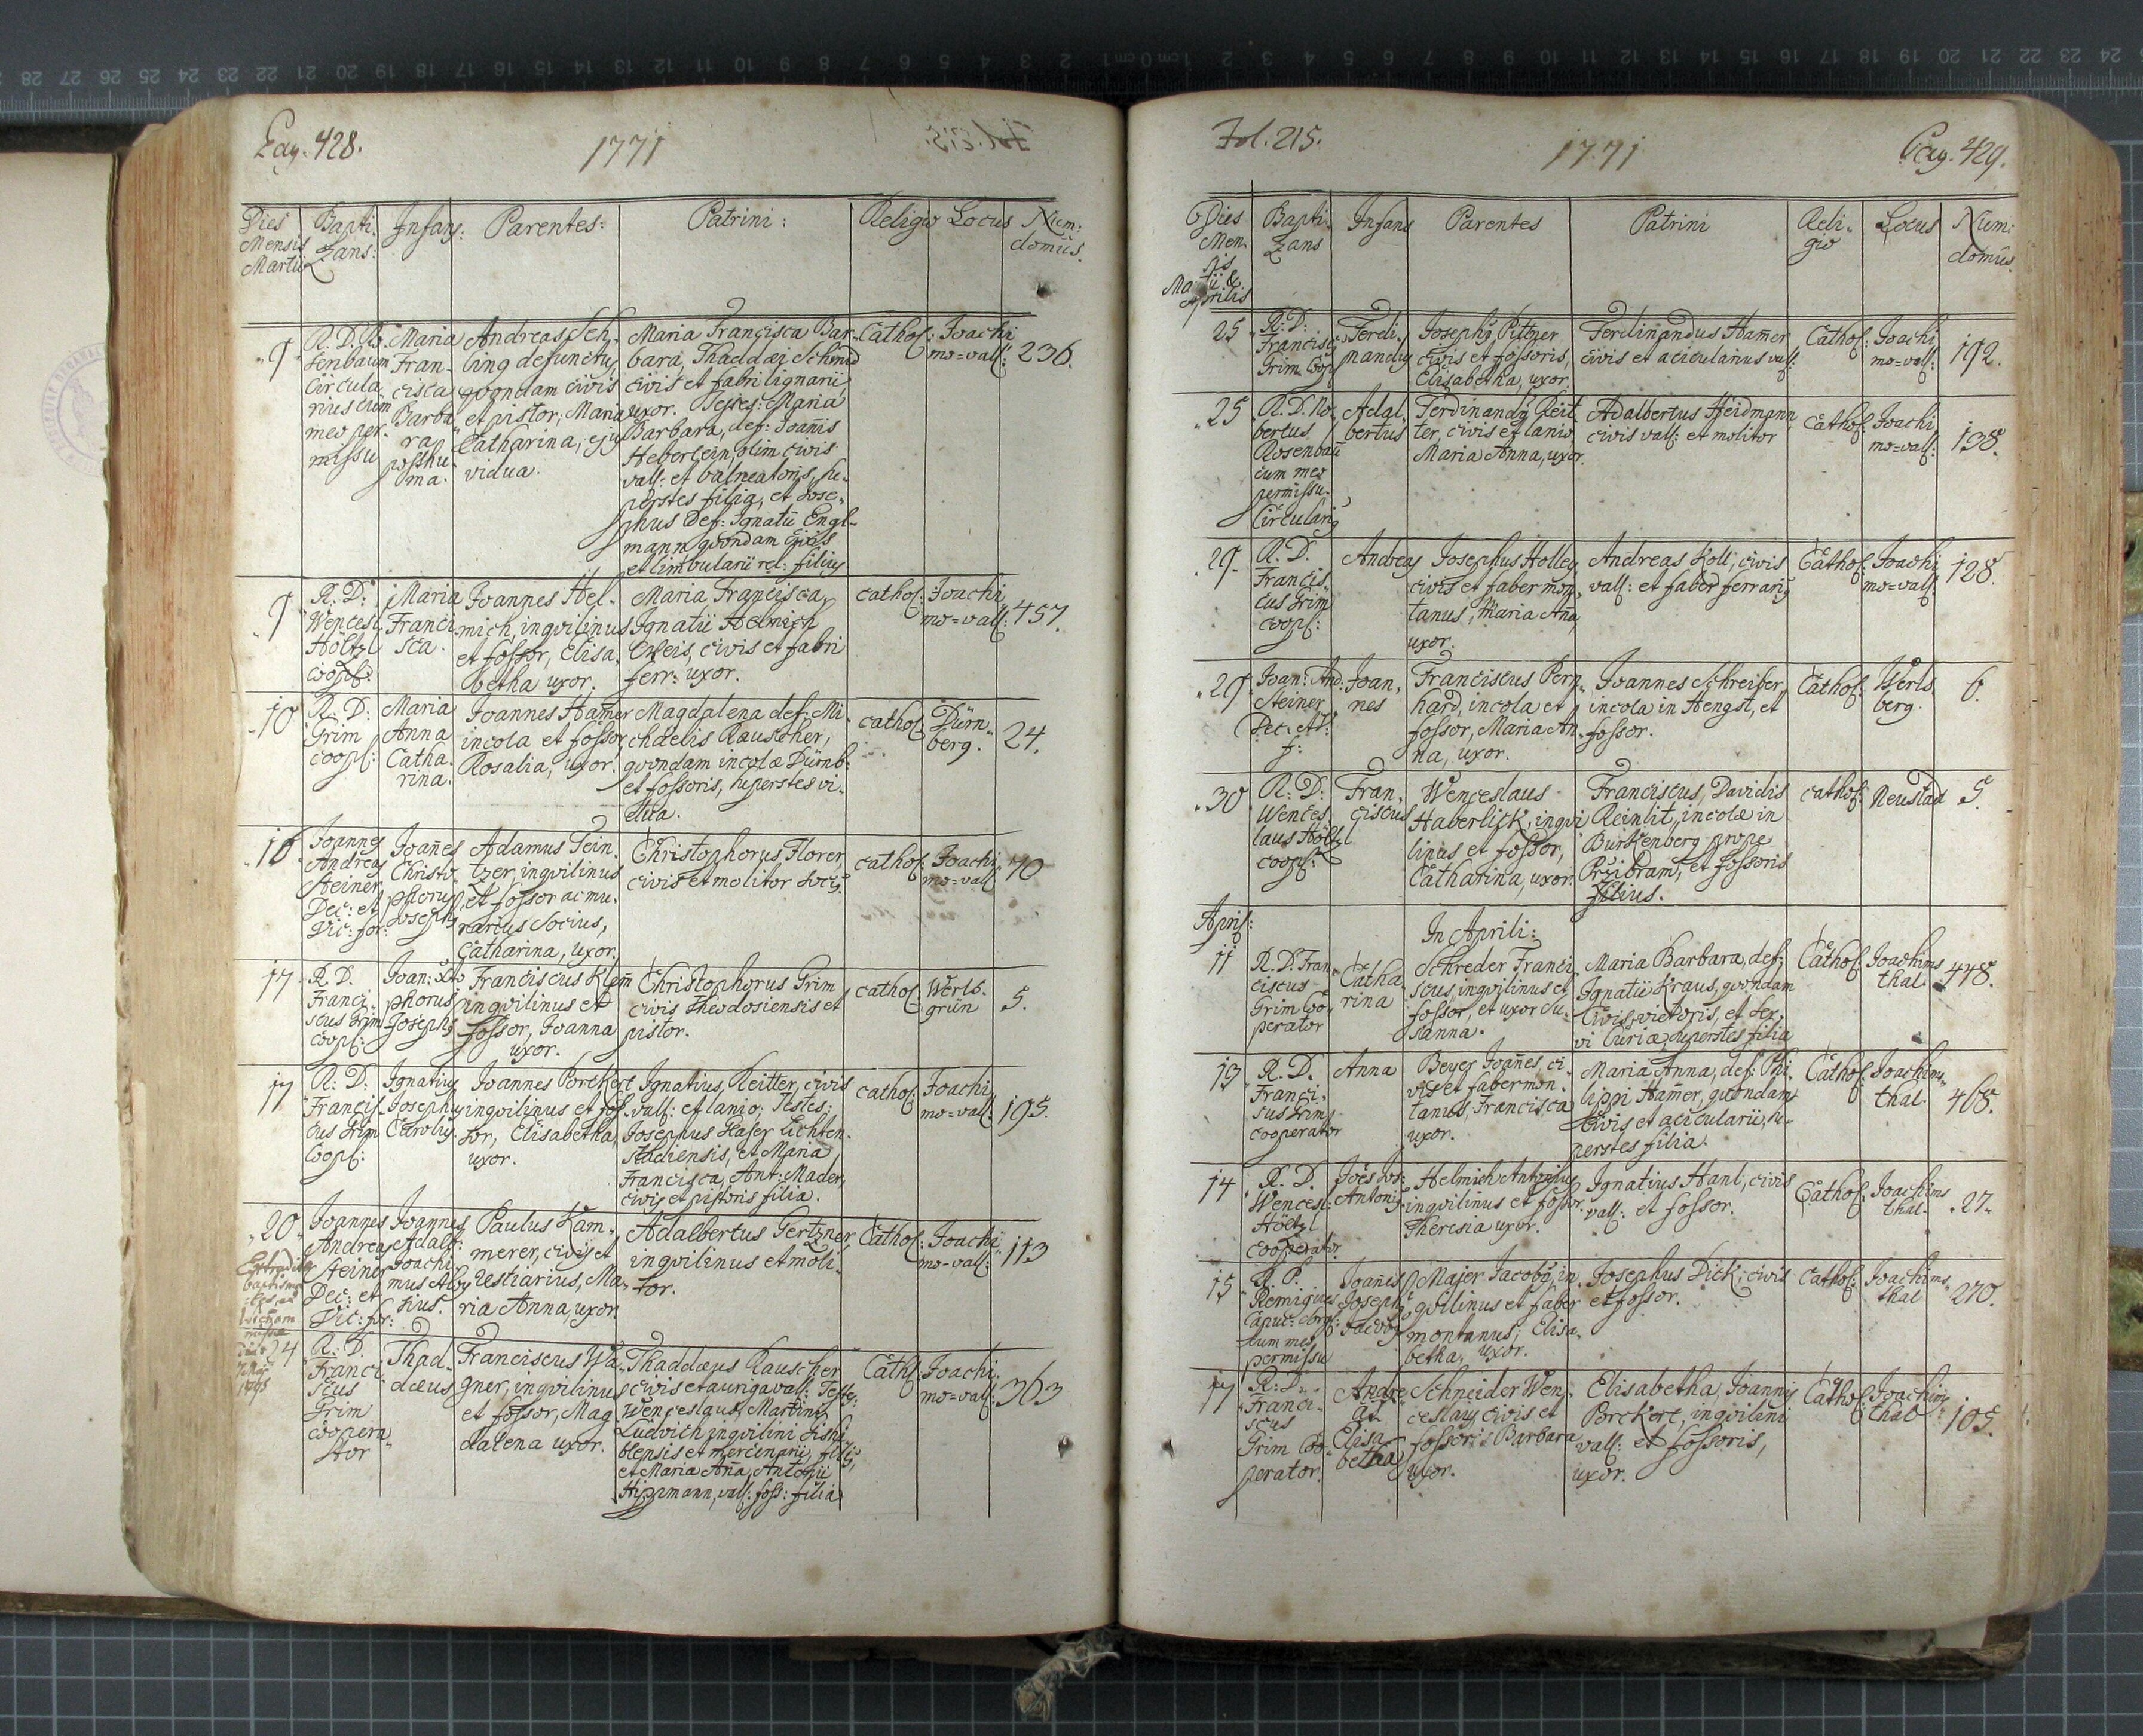 Pag. 428.
1771
Dies Mensis Martii
Bapti-
zans:
Infans:
Parentes:
Patrini:
Religio
Locus
Num:
domus.
9
R. D. Ro-
senbaum
Circula-
rius cum
meo per-
missu
Maria
Fran-
cisca
Barba-
ra
posthu-
ma.
Andreas Seh-
ling defunctus
quondam civis
et pistor, Maria
Catharina, ejus
vidua.
Maria Francisca Bar-
bara, Thaddæi Schmid
civis et fabri lignarii
uxor. Testes: Maria
Barbara, def: Joanis
Heberlein, olim civis
vall: et balneatoris, su-
perstes filia, et Jose-
phus Def: Ignatii Engl-
mann quondam civis
et limbularii rel: filius
Cathol:
Joachi
mo=vall:
236.
9
R. D.
Wencesl:
Höltzl
coop:
Maria
Franci-
sca.
Joannes Hel-
mich, inqvilinus
et fossor, Elisa-
betha uxor.
Maria Francisca,
Ignatii Helmich
civis et fabri
ferr: uxor.
cathol:
Joachi
mo=vall:
457.
10
R. D:
Grim
coop:
Maria
Anna
Catha-
rina.
Joannes Ham̄er
incola et fossor,
Rosalia, uxor.
Magdalena def: Mi-
chaelis Rauscher,
quondam incolæ Dürnb:
et fossoris, superstes vi-
dua.
cathol:
Dürn-
berg.
24.
16
Joannes
Andreas
Steiner
Dec: et
Vic: for:
Joan̄es
Christo-
phorus
Josephus
Adamus Tein-
tzer, inqvilinus
et fossor ac mu-
rarius Socius,
Catharina, uxor.
Christophorus Florer,
civis et molitor
cathol:
Joachi
mo=vall:
70
17
R. D.
Franci-
scus Grim
coop:
Joan: Xto
phorus
Josephus
Franciscus Klem̄
inqvilinus et
fossor, Joanna
uxor.
Christophorus Grim
civis Theodosiensis et
pistor.
cathol:
Werls-
grün
5.
17
R. D:
Francis-
cus Grim
Coop:
Ignatius
Josephus
Carolus.
Joannes Porckert
inqvilinus et fos-
sor, Elisabetha,
uxor.
Ignatius Reitter, civis
vall: et lanio; Testes:
Josephus Haser Lichten-
stadiensis, et Maria
Francisca, Ant: Mader,
civis et pistoris filia.
cathol:
Joachi
mo=vall:
195.
20
Joannes
Andreas
Steiner
Dec: et
Vic: for:
Joannes
Adalb:
Joachi-
mus Aloy
sius.
Paulus Kam-
merer, civis et
vestiarius, Ma-
ria Anna, uxor.
Adalbertus Gertzner,
inqvilinus et moli-
tor.
Cathol:
Joachi
mo=vall:
113
24
R. D.
Franci-
scus
Grim
coopera
tor
Thad-
dæus
Franciscus Wa-
gner, inqvilinus
et fossor, Mag-
dalena uxor.
Thaddæus Rauscher
civis et auriga vall: Testes:
Wenceslaus, Martini
Ludvich inqvilini
et mercenarii, filius,
et Maria An̄a, Antonii
Hippmann, vall: foss: filia
Cath:
Joachi
mo=vall:
363
Fol. 215.
1771
Pag. 429.
Dies
Men-
sis
Martii &
Aprilis
Bapti-
zans
Infans
Parentes
Patrini
Reli-
gio
Locus
Num:
domus.
25
R: D:
Francisc:
Grim Coop
Ferdi-
nandus
Josephus Pittner
civis et fossoris,
Elisabetha, uxor.
Ferdinandus Ham̄er
civis et acicularius vall:
Cathol:
Joachi
mo=vall:
192.
25
R. D. No-
bertus
Rosenbau
cum meo
permissu.
Circularis
Adal-
bertus
Ferdinandus Reit-
ter, civis et lanio,
Maria Anna, uxor.
Adalbertus Heidmann
civis vall: et molitor
Cathol:
Joachi
mo=vall:
138.
29
R. D.
Francis-
cus Grim
coop:
Andreas
Josephus Holley
civis et faber mon-
tanus, Maria An̄a,
uxor.
Andreas Koll, civis
vall: et faber ferrarius
Cathol:
Joachi
mo=vall:
128.
29
Joan: And:
Steiner
Dec. et V.
f:
Joan-
nes
Franciscus Pern-
hard, incola et
fossor, Maria An-
na, uxor.
Joannes Schreiber,
incola in Hengst, et
fossor.
Cathol:
Werls
berg.
6.
30
R. D:
Wences-
laus Höltzl
coop:
Fran-
ciscus
Wenceslaus
Haberlick, inqvi
linus et fossor,
Catharina, uxor.
Franciscus, Davidis
Reinlit, incolæ in
Burkenberg prope
Przibram, et fossoris
filius.
cathol:
Neustad
5.
April:
In Aprili:
11
R. D. Fran-
ciscus
Grim Coo-
perator
Catha-
rina
Schreder Franci-
scus, inqvilinus et
fossor, et uxor Su-
sanna.
Maria Barbara, def:
Ignatii Kraus, quondam
Civis, vietoris, et ser-
vi Curiæ, superstes filia
Cathol:
Joachims
thal.
448.
13
R. D.
Franci-
scus Grim
cooperator
Anna
Beyer Joan̄es, ci-
vis et faber mon-
tanus, Francisca
uxor.
Maria Anna, def: Phi-
lippi Ham̄er, quondam
Civis et acicularii, su-
perstes filia.
Cathol:
Joachims
thal.
468.
14
R. D.
Wencesl:
Höltzl
cooperator
Joēs Jos:
Antonius
Helmich Antonius
inqvilinus et fossor.
Theresia uxor.
Ignatius Hanl, civis
vall: et fossor.
Cathol:
Joachims
thal.
27
15
R. P.
Remigius
Capuc:
cum meo
permissu
Joan̄es
Joseph:
Jacobus
Majer Jacobus, in-
qvilinus et faber
montanus; Elisa-
betha, uxor.
Josephus Dick, civis
et fossor.
Cathol:
Joachims
thal
270.
17
R. D.
Franci-
scus
Grim Coo-
perator.
Andre-
as
Elisa-
betha
Schneider Wen-
ceslaus civis et
fossoris Barbara
uxor.
Elisabetha, Joannis
Porckert, inqvilini
vall: et fossoris,
uxor.
Cathol:
Joachims
thal
105.